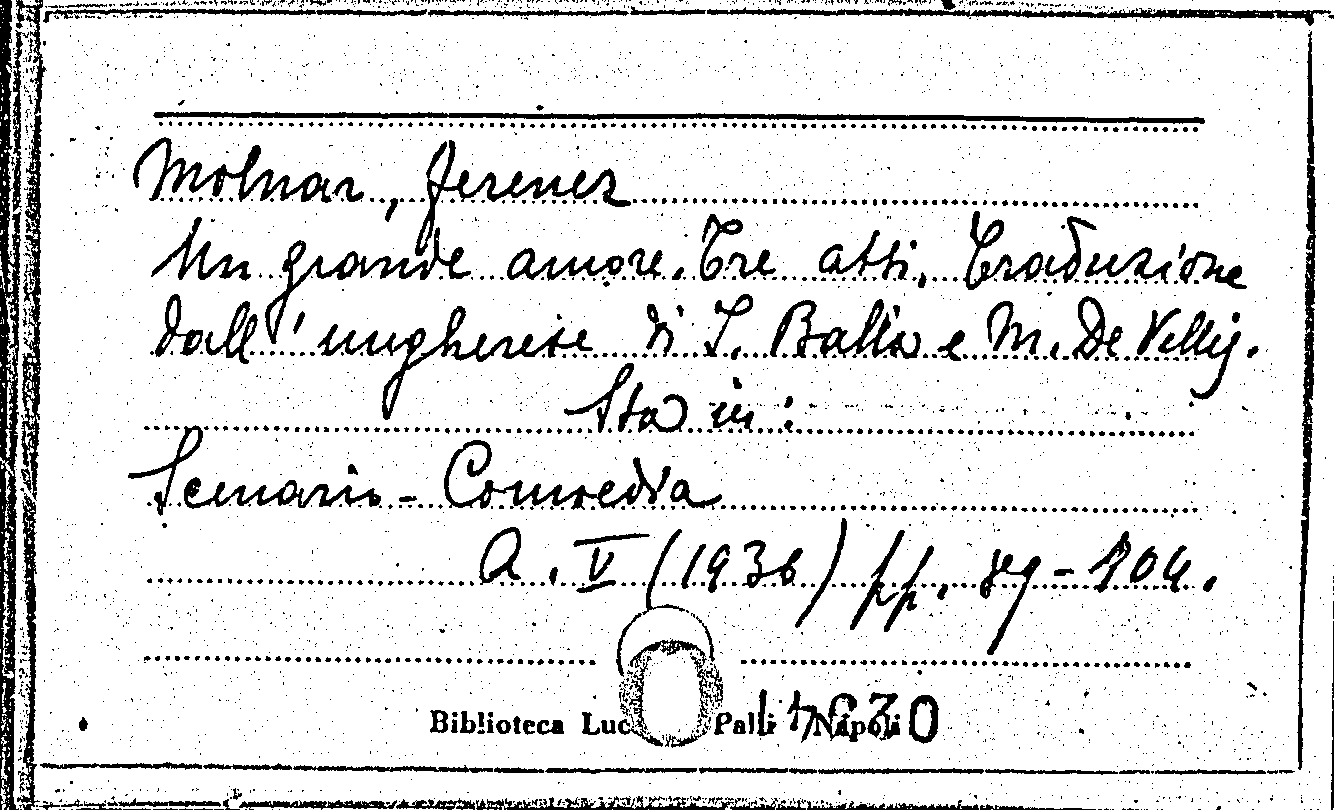 Molnar, Ferencz
Un grande amore. Tre atti. Traduzione
dall'ungherese di S. Balla e M. De Vellij.
Sta in:
Scenario - Comoedia
A. V (1936) pp. 89-104.
Biblioteca Luc Palli Napoli